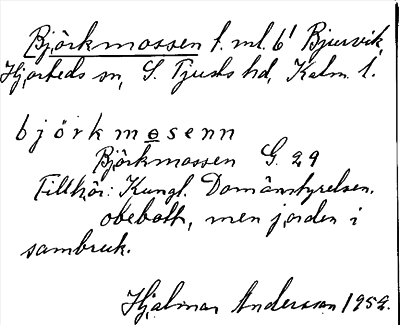 Björkmossen t. ml. 6¹ Bjurvik,
Hjorteds sn, S. Tjusts hd, Kalm. l.
björkmosenn
Björkmossen G. 29
Tillhör: Kungl. Domänstyrelsen.
obebott, men jorden i
sambruk.
Hjalmar Andersson 1952.